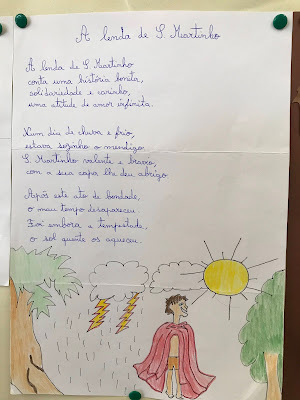 A lenda de S. Martinho
A lenda de S. Martinho
conta uma história bonita,
solidariedade e carinho,
uma atitude de amor infinita.
Num dia de chuva e frio,
estava sozinho o mendigo
S. Martinho valente e bravo,
com a sua capa lhe deu abrigo
Após este ato de bondade,
o mau tempo desapareceu
Foi embora a tempestade,
o sol quente os aqueceu